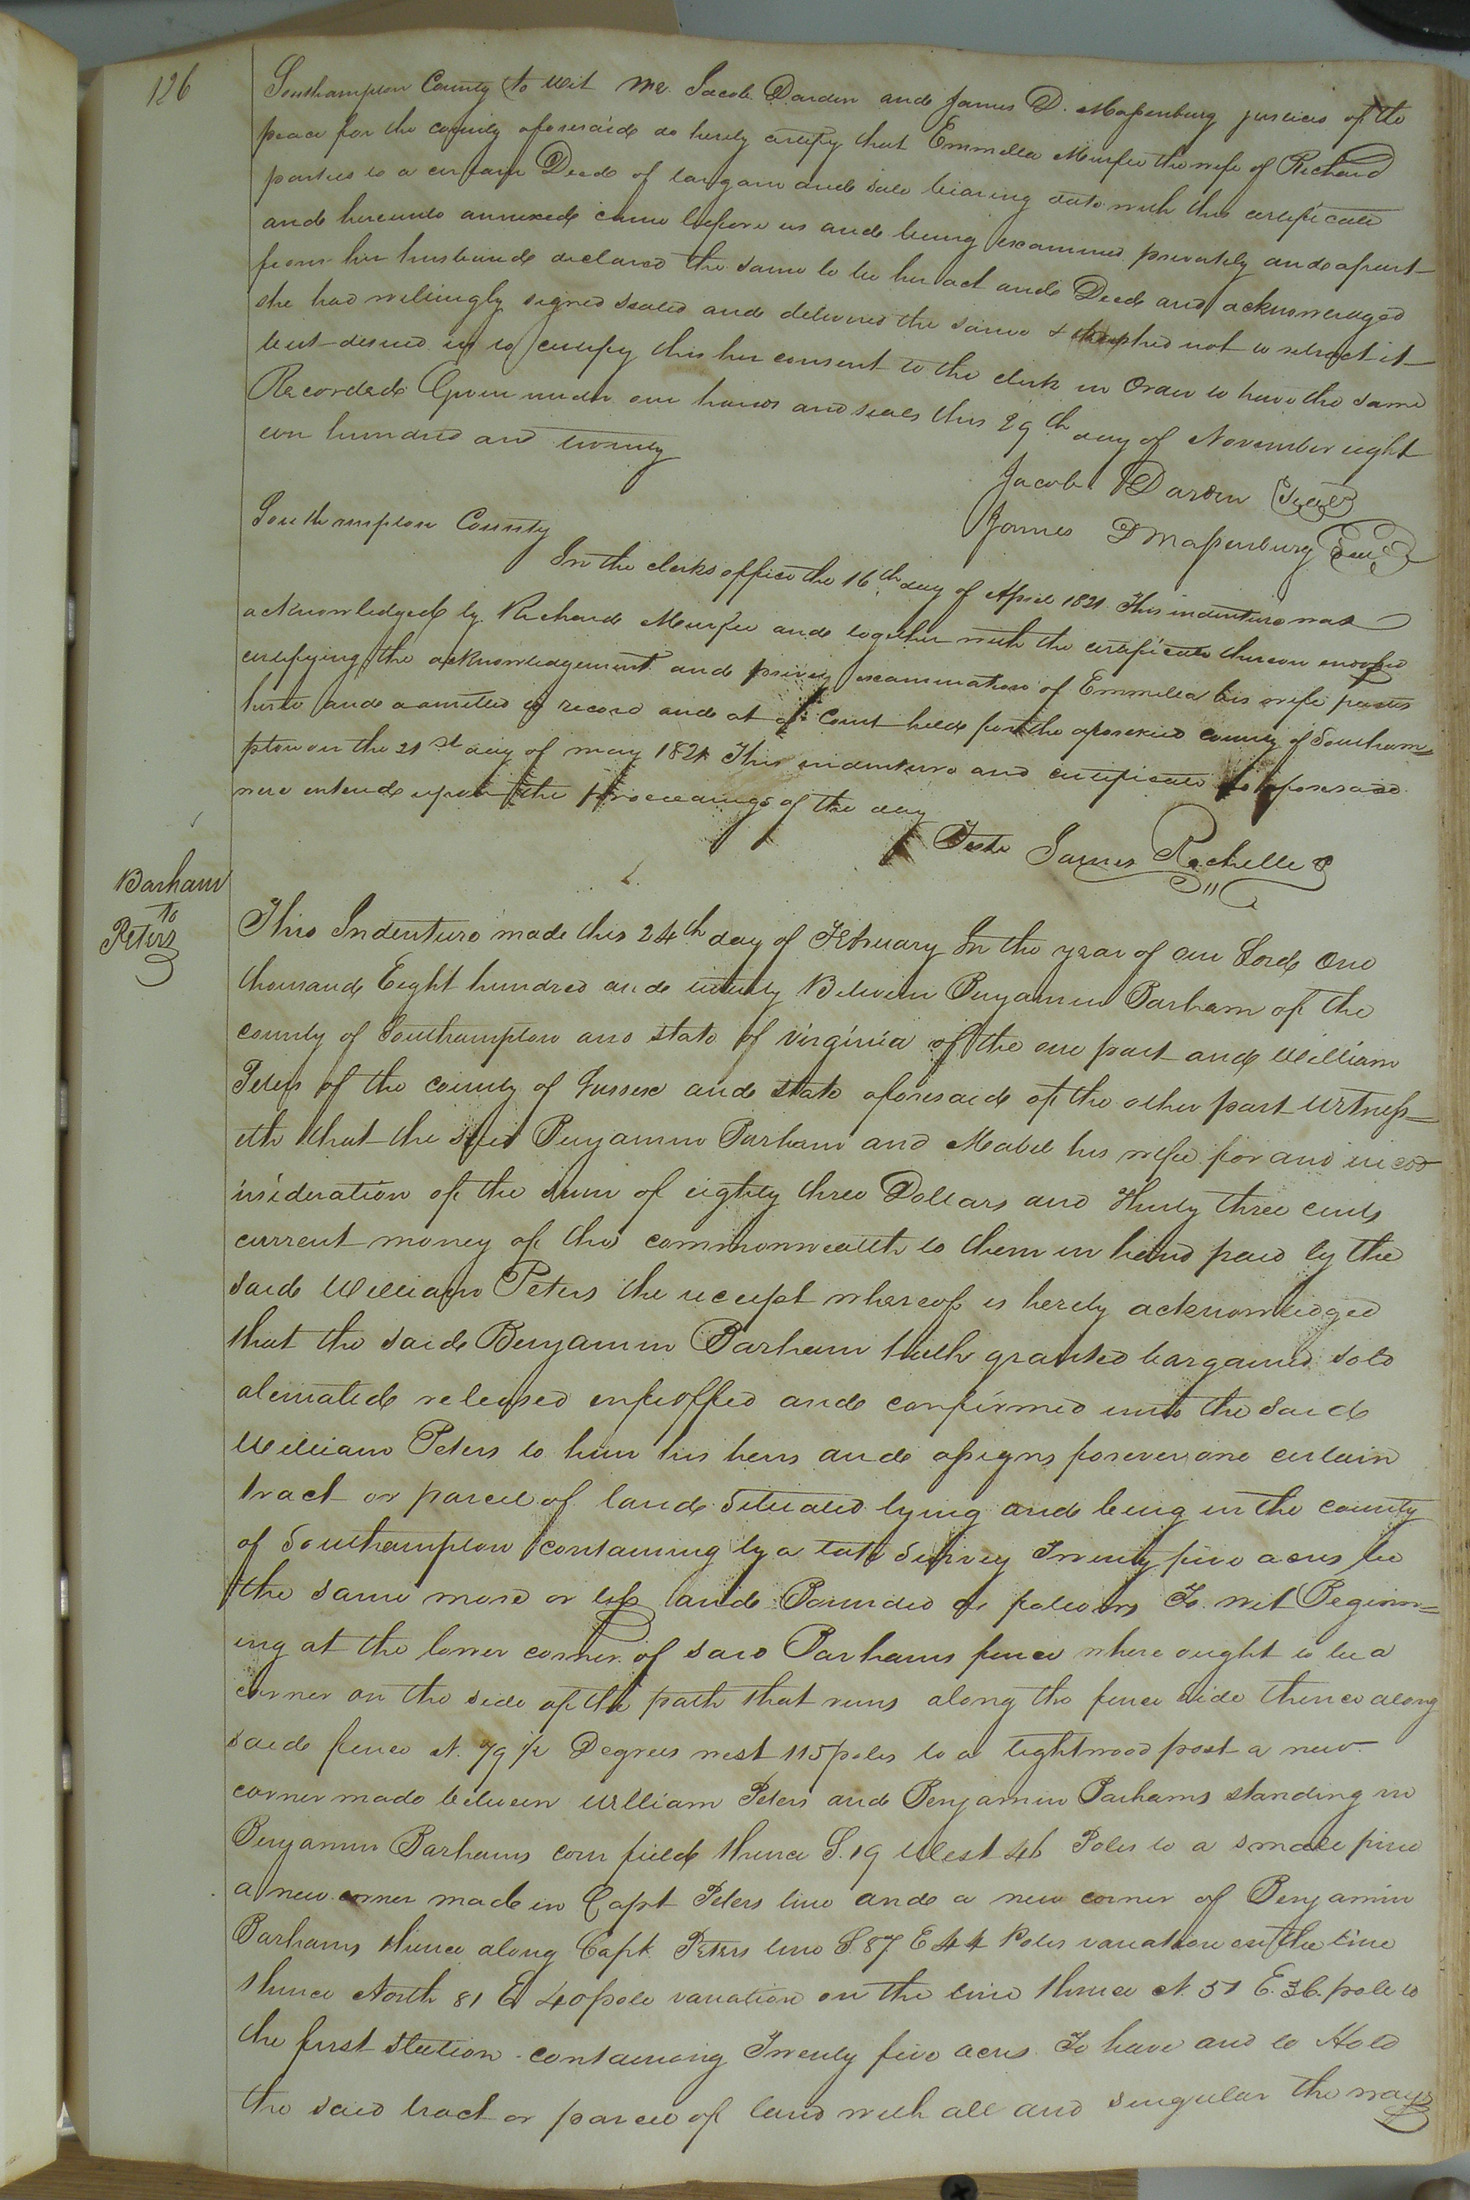 126
Southampton County to Wit We Jacob Darden and James D. Massenburg justices of the
peace for the county aforesaid do hereby certify that Emmilla Murfee the wife of Richard
parties to a certain Deed of bargain and sale bearing date with this certificate
and hereunto annexed came before us and being examined privately and apart
from her husband declared the same to be her act and Deed and acknowledged
she had willingly signed sealed and delivered the same & wished not to retract it
but desired us to certify this her consent to the clerk in Order to have the same
Recorded Given under our hands and seals this 29th day of November eight
een hundred and twenty
Jacob Darden Seal
James D Massenburg Seal
Southampton County
In the clerks office the 16th day of April 1821 This indenture was
acknowledged by Richard Murfee and together with the certificate thereon endorsed
certifying the acknowledgement and privey examination of Emmilla his wife parties
hereto and admitted to record and at a Court held for the aforesaid county of Southam=
pton on the 21st day of may 1821 This indenture and certificate as aforesaid
were entered upon the proceedings of the day
Teste James Rochelle
Barham
To
Peters
This Indenture made this 24th day of February In the year of our Lord One
thousand Eight hundred and twenty Between Benjamin Barham of the
county of Southampton and state of Virginia of the one part and William
Peters of the county of Sussex and state aforesaid of the other part Witness
eth that the said Benjamin Barham and Mabel his wife for and in con
insideration of the sum of eighty three Dollars and Thirty three cents
current money of this commonwealth to them in hand paid by the
said William Peters the receipt whereof is hereby acknowledged
that the said Benjamin Barham hath granted bargained sold
alienated released enfeoffed and confirmed unto the said
William Peters to him his heirs and assigns forever one certain
tract or parcel of land situated lying and being in the county
of Southampton containing by a late survey Twenty five acres be
the same more or less and Bounded as follows To wit Beginn=
ing at the lower corner of said Barhams fence where ought to be a
corner on the side of the path that runs along the fence side thence along
said fence N. 79 1/2 Degrees west 115 poles to a lightwood post a new
corner made between William Peters and Benjamin Barhams standing in
Benjamin Barhams corn field thence S. 19 West 46 Poles to a small pine
a new corner made in Capt Peters line and a new corner of Benjamin
Barhams thence along Capt. Peters line S. 87 E 44 Poles variation on the line
thence North 81 E 40 pole variation on the line thence N. 57 E. 36. pole to
the first station containing Twenty five acres To have and to Hold
the said tract or parcel of land with all and singular the ways